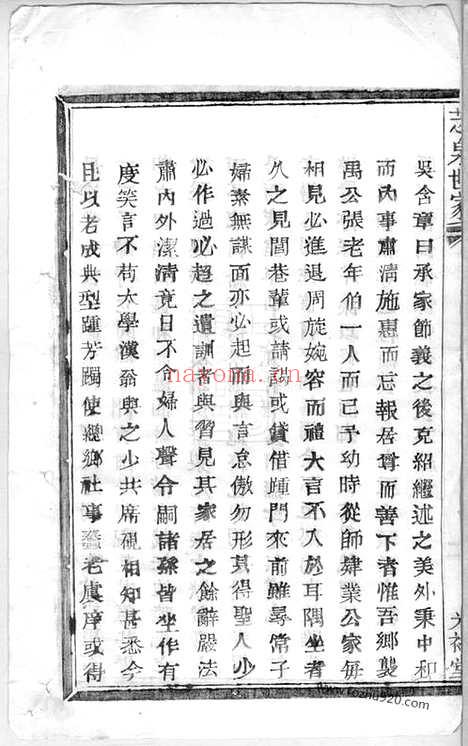 世家
吳舍章曰承家節義之後克紹繼述之美外秉中和
而內事肅清施惠而忘報居尊而善下者惟吾鄉龔
禹公張老年伯一人而已予幼時從師肄業公家每
相見必進退周旋婉容而禮大言不入於耳隅坐者
久之見閭巷輩或請謁或貸借踵門來前雖尋常子
婦素無謀面亦必起而與言怠傲勿形其得聖人少
必作過必趨之遺訓者與習見其家居之餘辭嚴法
肅內外潔清竟日不令婦人聲令嗣諸孫皆坐作有
度笑言不苟太學漢翁與之少共席硯相知甚悉今
且以老成典型踵芳躅使總鄉社事耋老虞庠或得
堂
nayona.cn
www.tozhu920.com